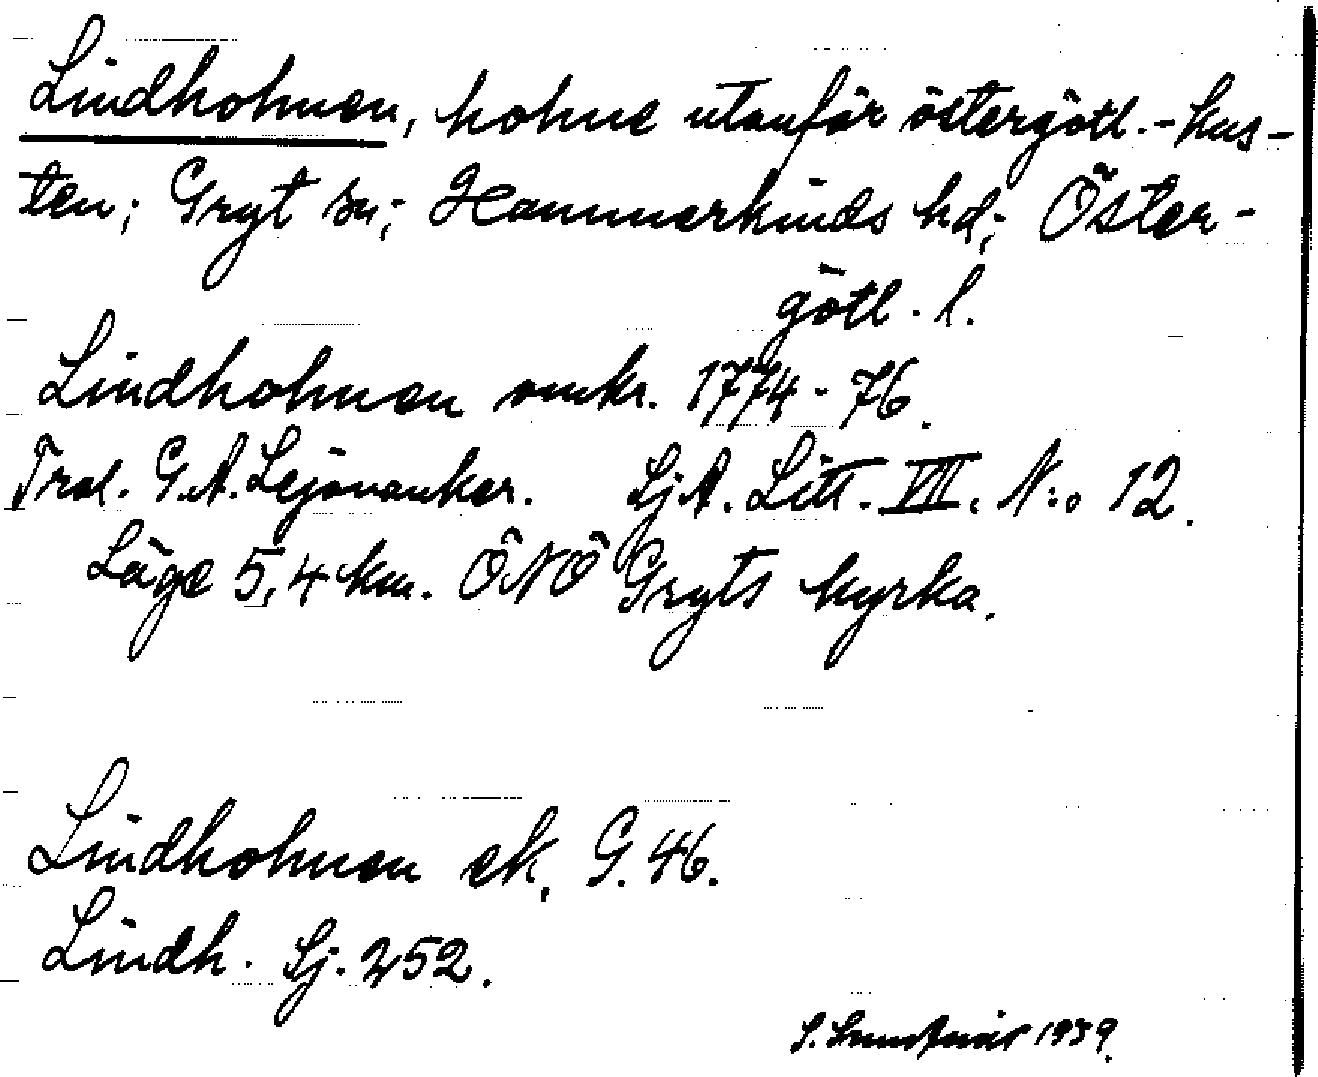 Lindholmen, holme utanför östergötl.-kus-
ten; Gryt sn; Hammerkinds hd; Öster-
götl. l.
Lindholmen omkr. 1774-76.
Trol. G.A. Lejonanker. Sj.A. Litt. VII. N:o 12.
Läge 5,4 km. ÖNÖ Gryts kyrka.
Lindholmen ek. G. 46.
Lindh. Sj. 252.
S. 1939.